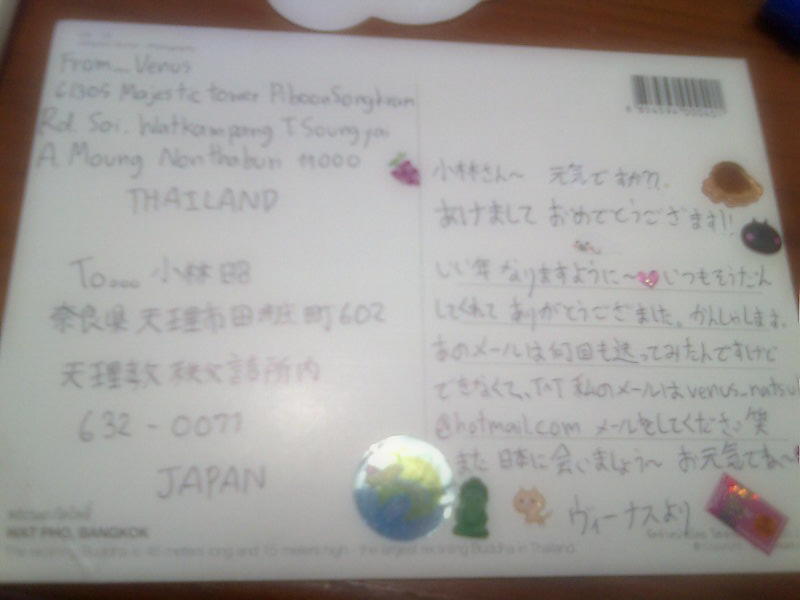 From... Venus
61305 Majestic tower PiboonSongkram
Rd. Soi. Watkampang T.Soungyai
A. Moung Nonthaburi 11000
THAILAND
To... 小林 昭
奈良県 天理市田井庄町602
天理教 秩父詰所内
632-0077
JAPAN
WAT PHO, BANGKOK
The reclining Buddha is 46 meters long and 15 meters high - the largest reclining Buddha in Thailand.
小林さん〜 元気ですか??,
あけまして おめでとうございます!!
いい年 なりますように〜 いつもそうだん
してくれて ありがとうございました。かんしゃします。
あのメールは何回も送ってみたんですけど
できなくて、T^T 私のメールは venus_natsu
@hotmail.com メールをしてください 笑
また 日本に会いましょう〜 お元気でね〜
ヴィーナスより